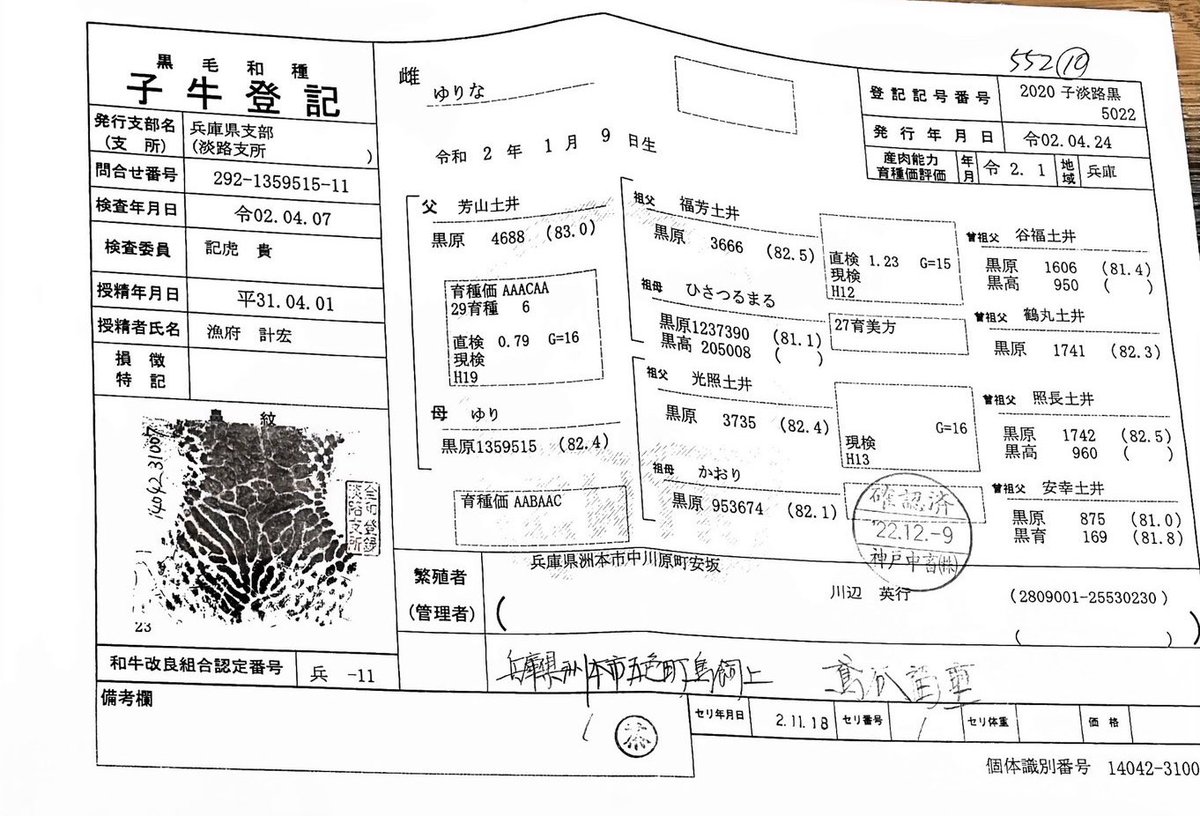 552 ⑩
黒毛和種
子牛登記
発行支部名
(支所)
兵庫県支部
(淡路支所 )
問合せ番号 292-1359515-11
検査年月日 令02.04.07
検査委員 記虎 貴
授精年月日 平31.04.01
授精者氏名 漁府 計宏
損徴
特記
鼻紋
1404231007
全和登録
淡路支所
23
和牛改良組合認定番号 兵 -11
備考欄
雌 ゆりな
令和 2 年 1 月 9 日生
登記記号番号 2020 子淡路黒
5022
発行年月日 令02.04.24
産肉能力
育種価評価 年月 令 2. 1 地域 兵庫
父 芳山土井
黒原 4688 (83.0)
育種価 AAACAA
29育種 6
直検 0.79 G=16
現検
H19
母 ゆり
黒原1359515 (82.4)
育種価 AABAAC
祖父 福芳土井
黒原 3666 (82.5)
直検 1.23 G=15
現検
H12
祖母 ひさつるまる
黒原1237390 (81.1)
黒高 205008 ( )
27育美方
祖父 光照土井
黒原 3735 (82.4)
G=16
現検
H13
祖母 かおり
黒原 953674 (82.1)
曽祖父 谷福土井
黒原 1606 (81.4)
黒高 950 ( )
曽祖父 鶴丸土井
黒原 1741 (82.3)
曽祖父 照長土井
黒原 1742 (82.5)
黒高 960 ( )
曽祖父 安幸土井
黒原 875 (81.0)
黒育 169 (81.8)
確認済
'22.12.-9
神戸中畜(株)
繁殖者
(管理者)
兵庫県洲本市中川原町安坂
川辺 英行 (2809001-25530230 )
( )
兵庫県洲本市五色町鳥飼上
セリ年月日 2.11.18 セリ番号 セリ体重 価格
個体識別番号 14042-3100